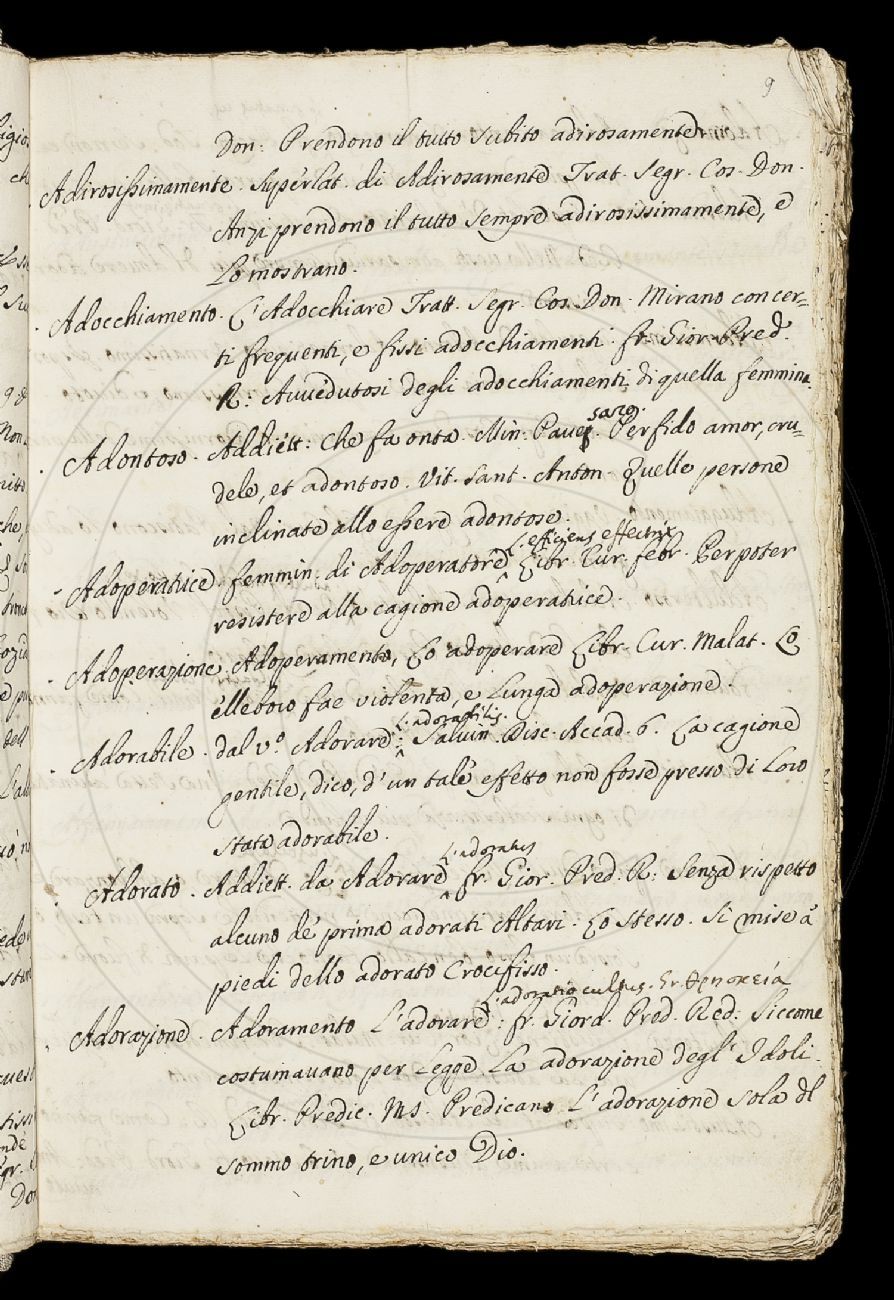 9
Don: Prendono il tutto subito adirosamente
Adirosissimamente. Superlat. di Adirosamente Trat. Segr. Cos. Don.
Anzi prendono il tutto sempre adirosissimamente, e
Lo mostrano.
Adocchiamento. L'Adocchiare Tratt. Segr. Cos. Don. Mirano con cer=
ti frequenti, e fissi adocchiamenti. fr. Gior. Pred.
R: Avvedutosi degli adocchiamenti di quella femmina.
Adontoso. Addiett: Che fa onta. Min. Paves. Perfido amor, cru=
dele, et adontoso. Vit. Sant. Anton. Quelle persone
inclinate allo essere adontose.
L. efficiens effectrix
Adoperatrice femmin. di Adoperatore Libr. Cur. febr. Per poter
resistere alla cagione adoperatrice.
Adoperazione. Adoperamento, Lo adoperare Libr. Cur. Malat. Lo
elleboro fae violenta, e Lunga adoperazione.
L. adorabilis.
Adorabile. dal v.º Adorare: Salvin. Disc. Accad. 6. La cagione
gentile, dico, d'un tale effetto non fosse presso di Loro
stata adorabile.
L. adoratus
Adorato. Addiett. da Adorare fr. Gior. Pred. R: Senza rispetto
alcuno de' prima adorati Altari. Lo stesso. Si mise a'
piedi dello adorato Crocifisso.
L. adoratio cultus. Gr. θρησκεία
Adorazione. Adoramento L'adorare: fr. Giord. Pred. Red: Siccome
costumavano per Legge La adorazione degl' Idoli.
Libr. Predic. Ms. Predicano L'adorazione sola dl
sommo trino, e unico Dio.